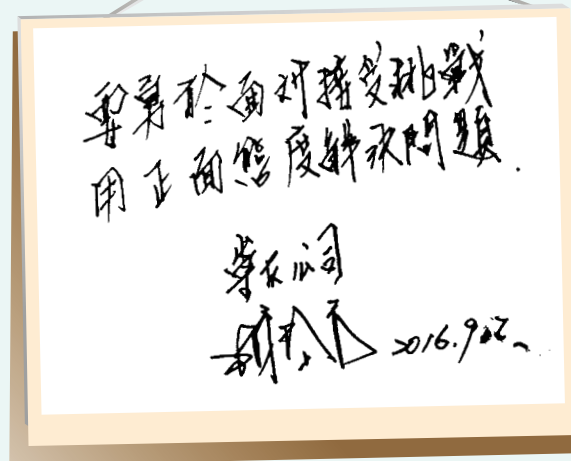 要勇於面對接受挑戰
用正面態度解決問題.
公司
2016.9